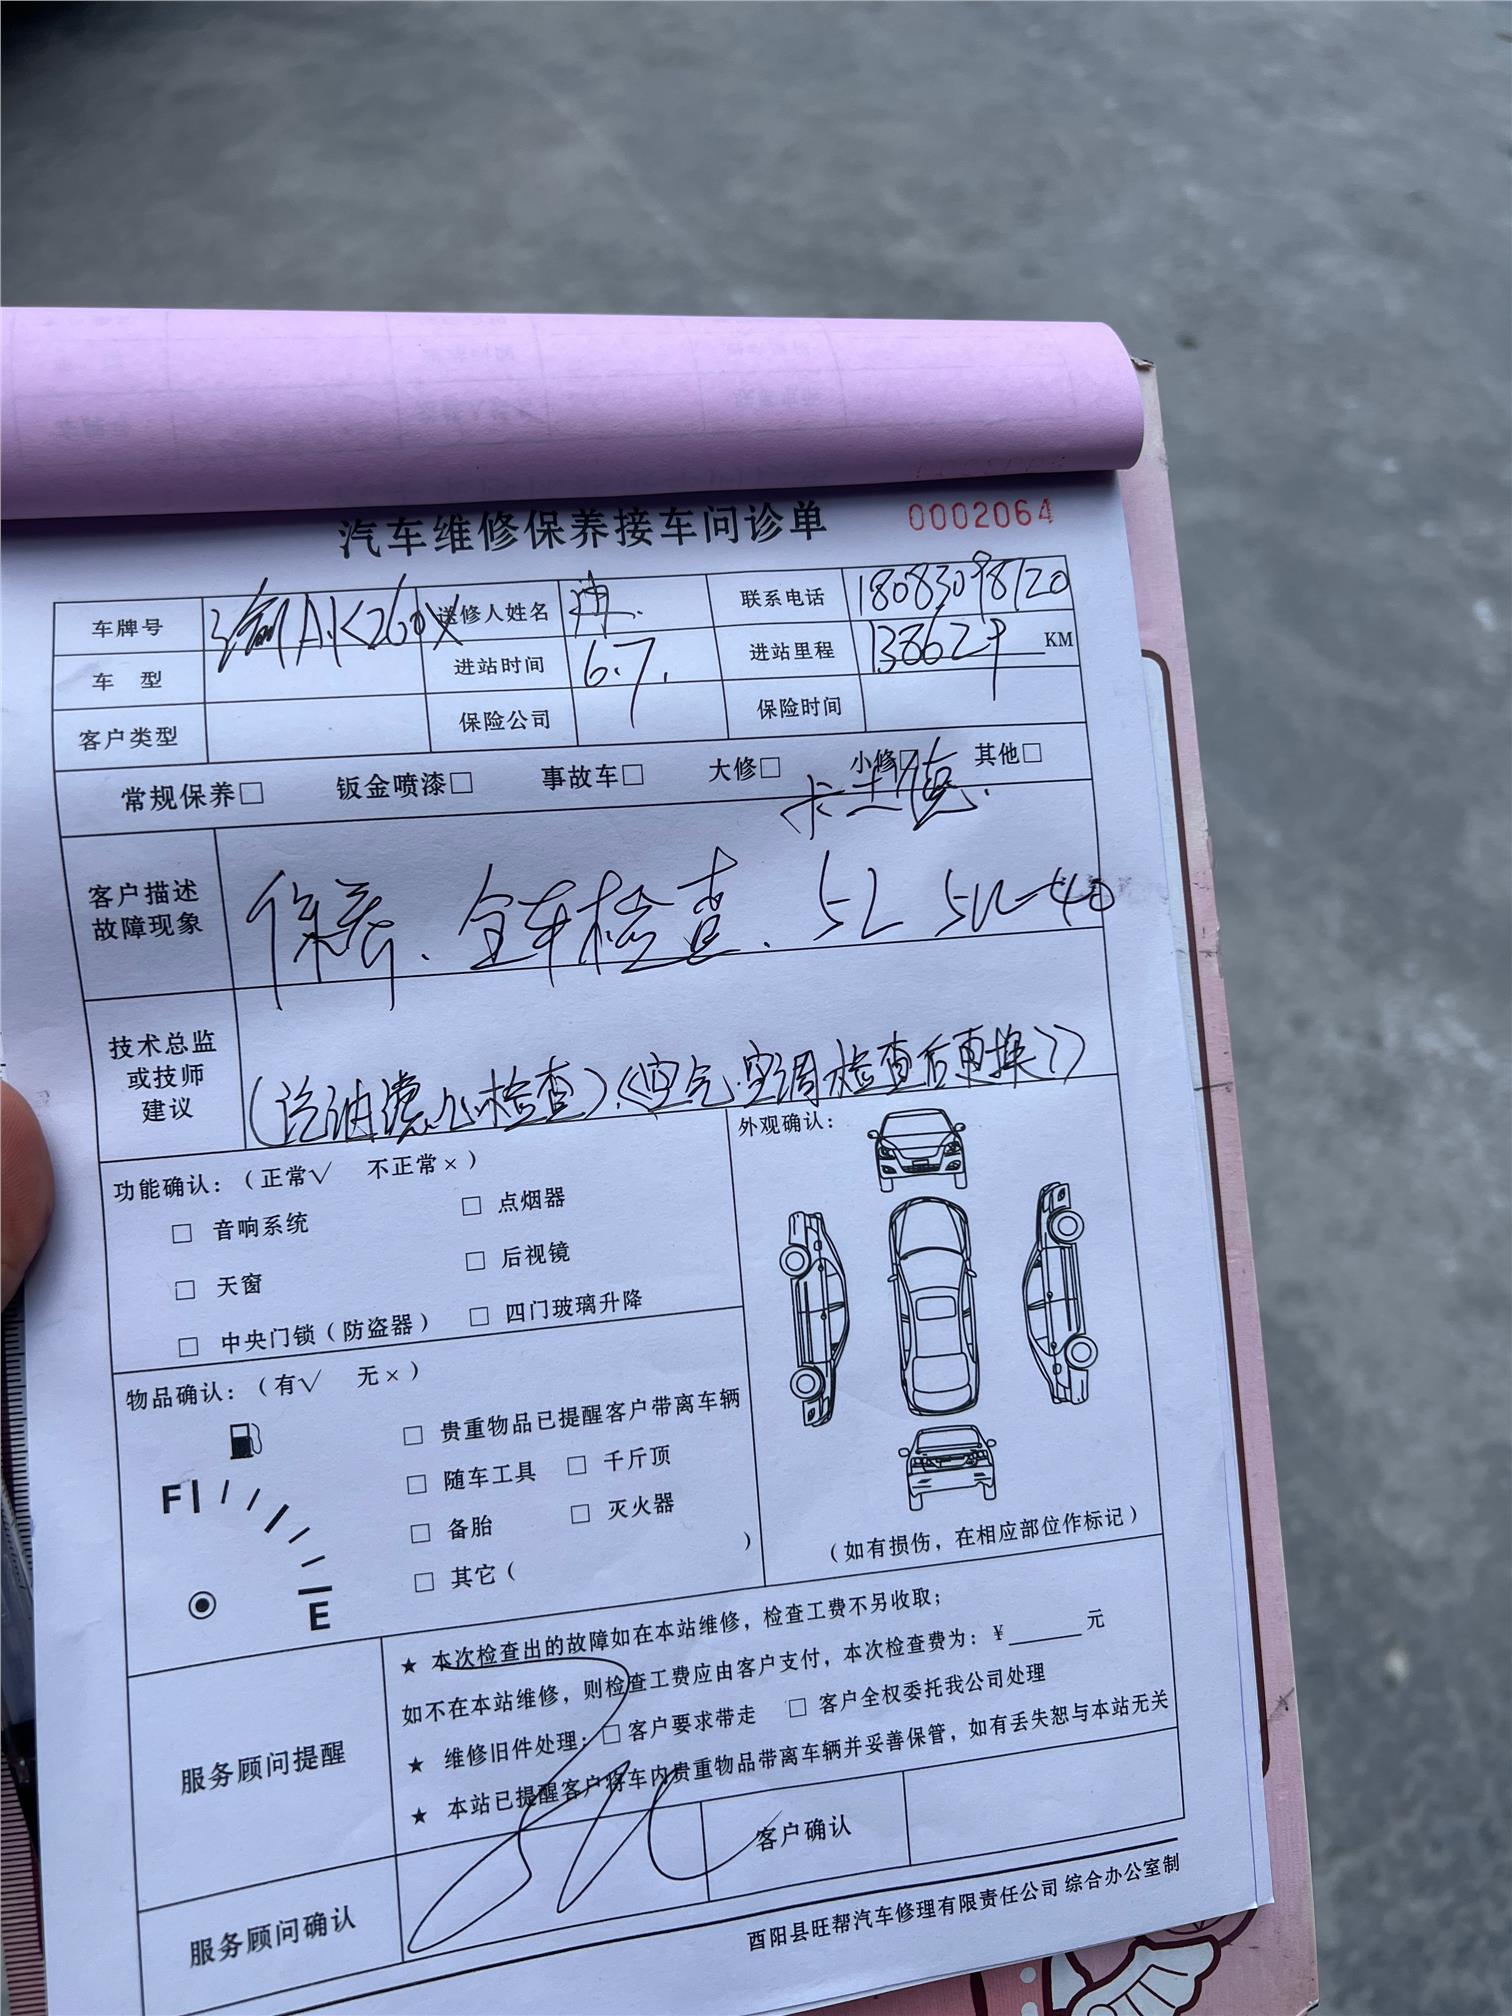 汽车维修保养接车问诊单 0002064
车牌号 渝AK260X 送修人姓名 冉. 联系电话 18083098120
车 型 进站时间 6.7. 进站里程 138629 KM
客户类型 保险公司 保险时间
常规保养□ 钣金喷漆□ 事故车□ 大修□ 小修□ 其他□
卡士德.
客户描述
故障现象
保养、全车检查. 5L 5W-40
技术总监
或技师
建议
(汽油滤心检查).《空气.空调检查后更换》
功能确认：（正常√ 不正常×）
□ 音响系统 □ 点烟器
□ 天窗 □ 后视镜
□ 中央门锁（防盗器） □ 四门玻璃升降
外观确认：
（如有损伤，在相应部位作标记）
物品确认：（有√ 无×）
F
E
□ 贵重物品已提醒客户带离车辆
□ 随车工具 □ 千斤顶
□ 备胎 □ 灭火器
□ 其它（ ）
服务顾问提醒
★ 本次检查出的故障如在本站维修，检查工费不另收取；
如不在本站维修，则检查工费应由客户支付，本次检查费为：¥______元
★ 维修旧件处理：□客户要求带走 □ 客户全权委托我公司处理
★ 本站已提醒客户将车内贵重物品带离车辆并妥善保管，如有丢失恕与本站无关
服务顾问确认 客户确认
酉阳县旺帮汽车修理有限责任公司 综合办公室制